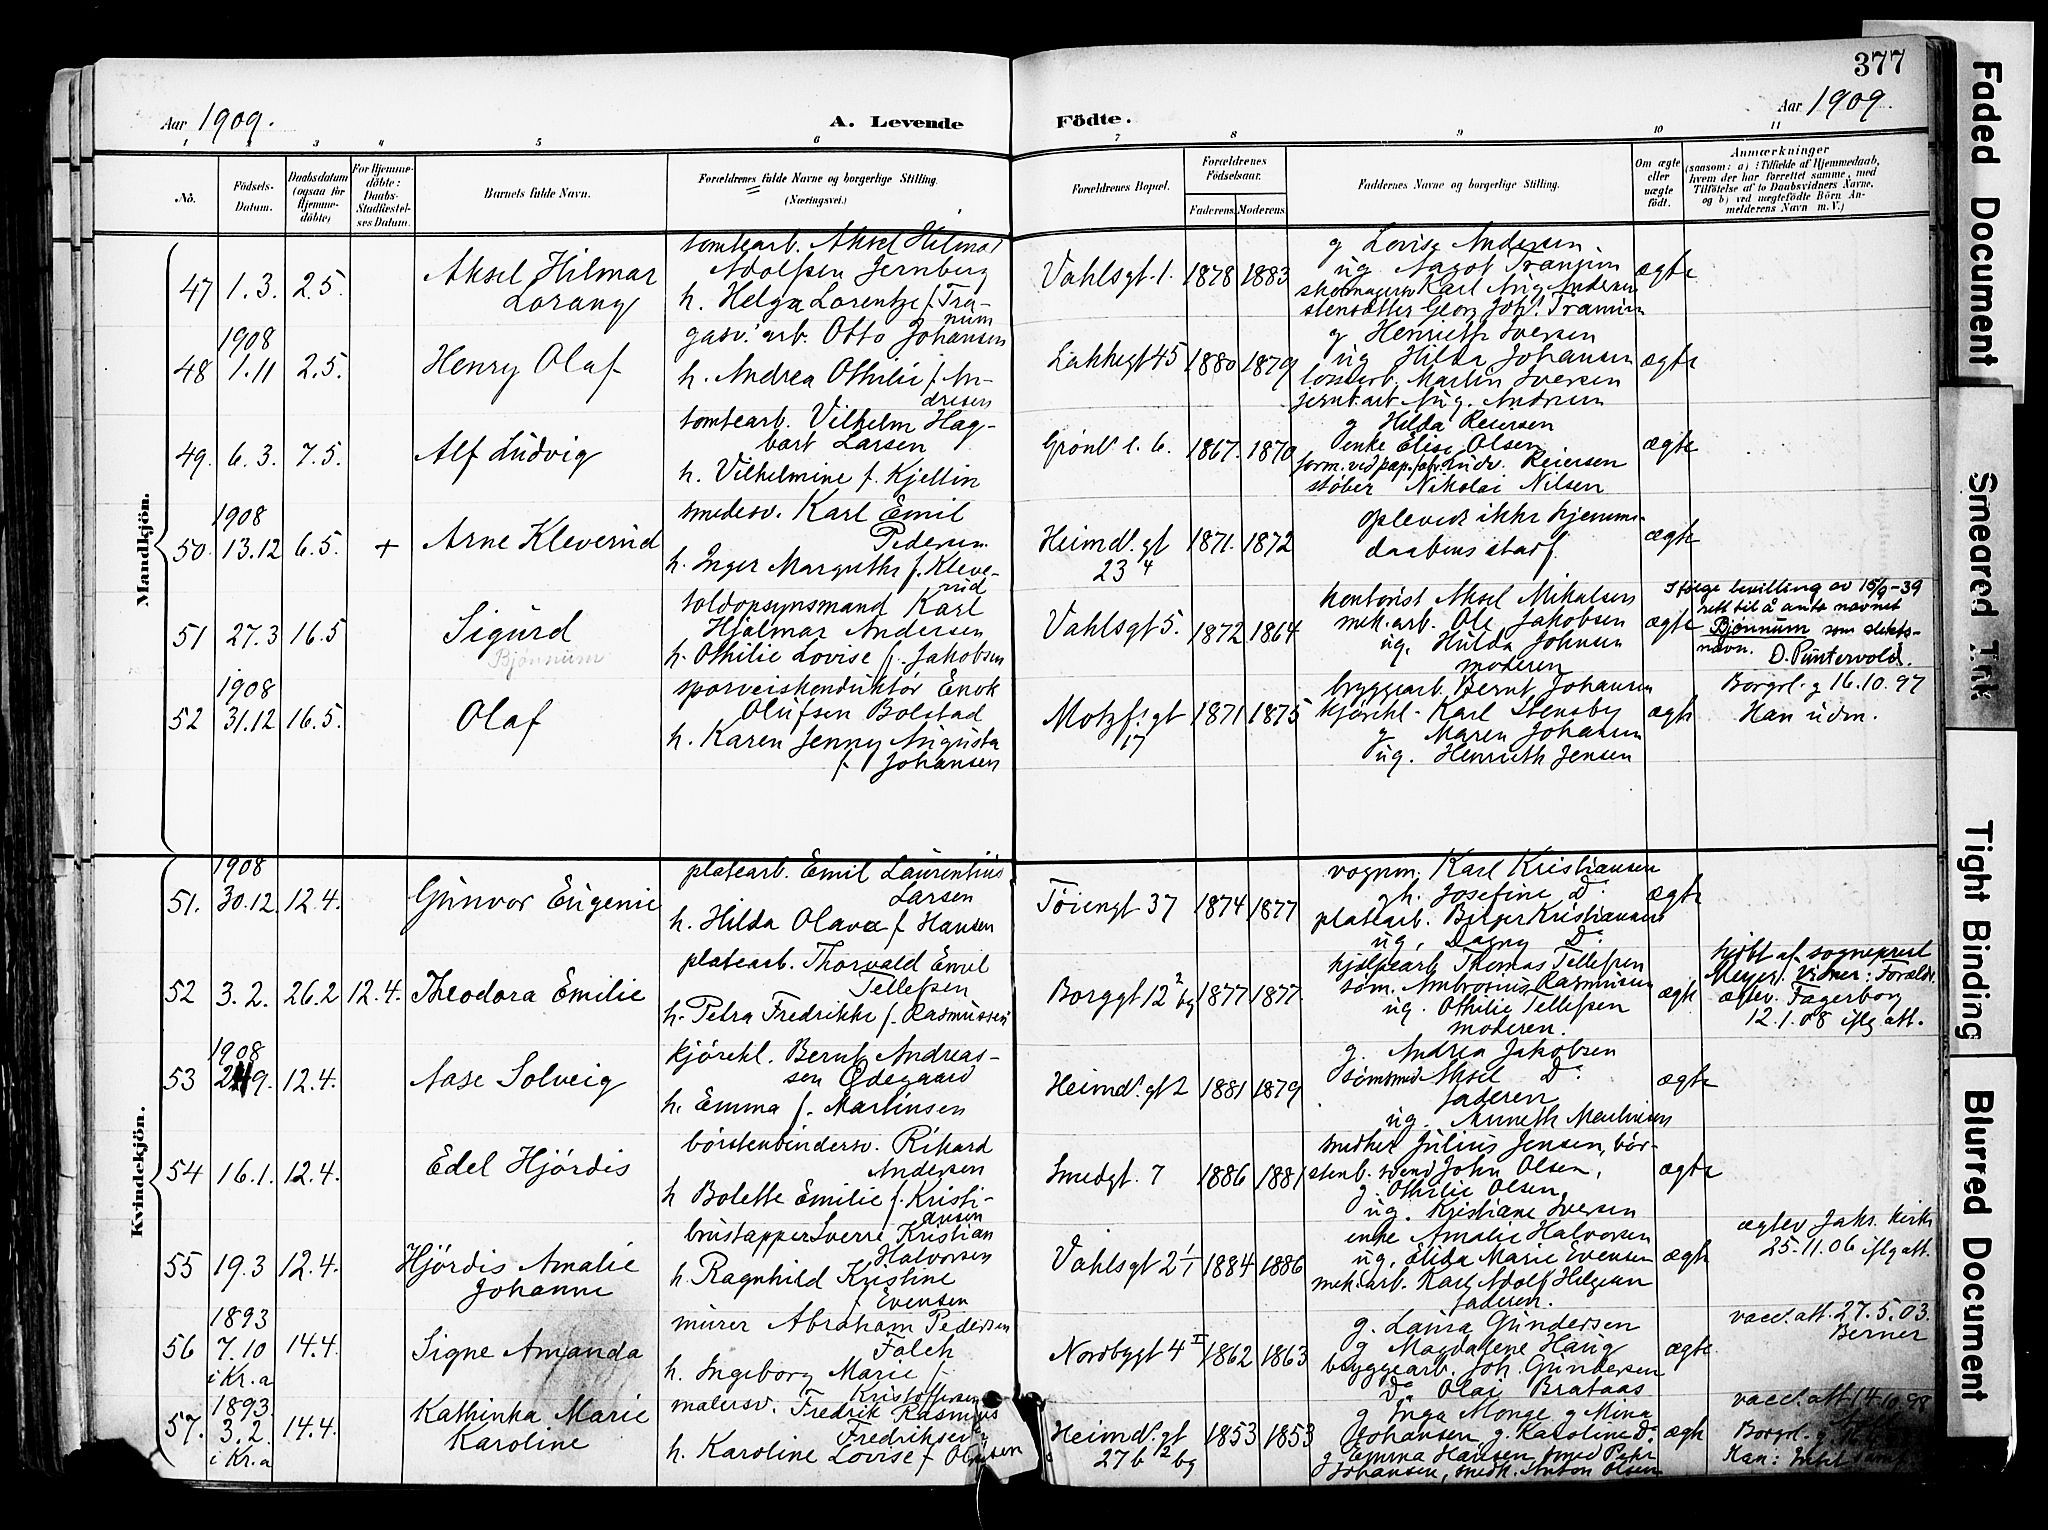 377
Aar 1909.
A. Levende Födte.
Aar 1909.
1 2 3 4 5 6 7 8 9 10 11
No.
Födsels-
Datum.
Daabsdatum
(ogsaa for
Hjemme-
döbte)
For Hjemme-
döbte:
Daabs-
Stadfæstel-
ses Datum.
Barnets fulde Navn.
Forældrenes fulde Navne og borgerlige Stilling.
(Næringsvei.)
Forældrenes Bopæl.
Forældrenes
Födselsaar.
Faderens. Moderens.
Faddernes Navne og borgerlige Stilling.
Om ægte
eller
uægte
født.
Anmærkninger
(saasom: a) i Tilfælde af Hjemmedaab,
hvem der har forrettet samme, med
Tilföielse af to Daabsvidners Navne,
og b) ved uægtefödte Börn An-
melderens Navn m. V.)
Mandkjön.
47 1.3. 2.5.
Aksel Hilmar
Lorang
tomtearb. Aksel Hilmar
Adolfsen Jernberg
h. Helga Lorentze f. Tra-
num
Vahlsgt. 1. 1878 1883
g Lovise Andersen.
ug. Aagot
skomagersv Karl Aug. Andersen
stensætter Georg Joh.
ægte
48 1908
1.11 2.5.
Henry Olaf
gasv. arb. Otto Johansen
h. Andrea Othilie f. An-
dresen
Lakkegt 45 1880 1879
g Henriette Iversen
ug Hilda Johansen
lossearb. Martin Iversen
jernb. arb Aug. Andresen
ægte
49. 6.3. 7.5.
Alf Ludvig
tomtearb. Vilhelm Hag-
bart Larsen
h. Vilhelmine f. Kjellin
Grønl. l. 6. 1867. 1870
g Hilda Reiersen
enke Elise Olsen
form. ved pap. fabr. Ludv. Reiersen
støber Nikolai Nilsen
ægte
50. 1908
13.12 6.5. +
Arne Kleverud
smedesv. Karl Emil
Pedersen
h. Inger Margrethe f. Kleve-
rud
Heimd. gt
23 4 1871. 1872
Oplevede ikke hjemme-
daabens stadf.
ægte
51 27.3 16.5
Sigurd
Bjönnum
toldopsynsmand Karl
Hjalmar Andersen
h. Othilie Lovise f. Jakobsen
Vahlsgt 5. 1872 1864
kontorist Aksel Mikalsen
mek. arb. Ole Jakobsen
ug. Hulda Johnsen
moderen
ægte
Ifølge bevilling av 15/9-39
rett til å anta navnet
Bjönnum som slekts-
navn. D. Puntervold.
52 1908
31.12 16.5.
Olaf
sporveiskonduktør Enok
Olufsen Bolstad
h. Karen Jenny Augusta
f. Johansen
Motzf. gt
17 1871 1875
bryggearb. Bernt Johansen
kjørekl. Karl Stensby
g. Maren Johansen
ug. Henriette Jensen
ægte
Borgerl. g 16.10.97
Han udm.
Kvindekjön.
51. 1908
30.12. 12.4.
Gunvor Eugenie
platearb. Emil Laurentius
Larsen
h. Hilda Olava f Hansen
Tøiengt 37 1874 1877
vognm. Karl Kristiansen
h. Josefine Do
platearb. Birger Kristiansen
ug. Dagny Do
ægte
52 3.2. 26.2 12.4.
Theodora Emilie
platearb. Thorvald Emil
Tellefsen
h. Petra Fredrikke f. Rasmussen
Borggt 12 2 bg 1877 1877.
hjælpearb Thomas Tellefsen
søm. Ambrosius Rasmussen
ug. Othilie Tellefsen
moderen.
ægte
hjdbt af sogneprest
Meyer. Vidner: Forældr.
ægtev. Fagerborg
12.1.08 iflg att.
53 1908
9. 12.4.
Aase Solveig
kjørekl. Bernt Andreas-
sen Ødegaard
h. Emma f. Martinsen
Heimd. gt 2 1881 1879
g. Andrea Jakobsen
sømsmed Aksel Do
faderen
ug. Annette Martinsen
ægte
54 16.1. 12.4.
Edel Hjördis
børstenbindersv. Rikard
Andersen
h Bolette Emilie f. Kristi-
ansen
Smedgt. 7 1886 1881
smed Julius Jensen, bør-
stenb. svend John Olsen,
g. Othilie Olsen,
ug. Kristiane Iversen
ægte
55 19.3 12.4.
Hjördis Amalie
Johanne
brustapper Sverre Kristian
Halvorsen
h. Ragnhild Kristine
f Evensen
Vahlsgt 2 1/1 1884 1886
enke Amalie Halvorsen
ug. Elida Marie Evensen
mek. arb. Karl Adolf Helgesen
faderen.
ægte
ægtev Jaks. kirke
25.11.06 iflg att.
56 1893
7.10
i Kr.a 14.4.
Signe Amanda
murer Abraham Pedersen
Falch
h. Ingeborg Marie f.
Kristoffersen
Nordbygt 4 I 1862 1863
g. Laura Gundersen
g Magdalene Haug
bryggearb. Joh. Gundersen
Do Olai Brataas
ægte
vacc. att. 27.5.03.
Berner
57. 1893.
3.2.
i Kr.a 14.4.
Kathinka Marie
Karoline
malersv. Fredrik Rasmus
Fredriksen
h. Karoline Lovise f
Heimd. gt
27 b 2 bg 1853 1853
g Inga Monge g Mina
Johansen g. Karoline Do
g Emma Hansen, smed Petr
Johansen, smed. Anton Olsen
ægte
vacc. att 14.10.98
Borgerl. g
Han:
Faded Document
Smeared Ink
Tight Binding
Blurred Document